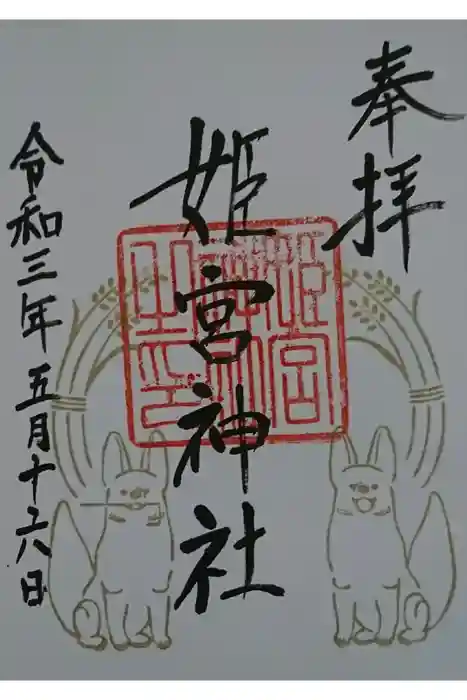 奉拝
姫宮神社
姫宮神社之印
令和三年五月十六日